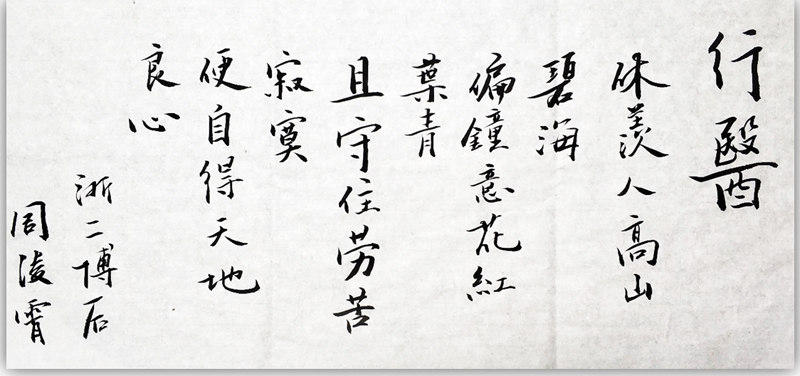 行醫
休羨人高山
碧海
偏鐘意花紅
葉青
且守住劳苦
寂寞
便自得天地
良心
浙二博后
周凌霄